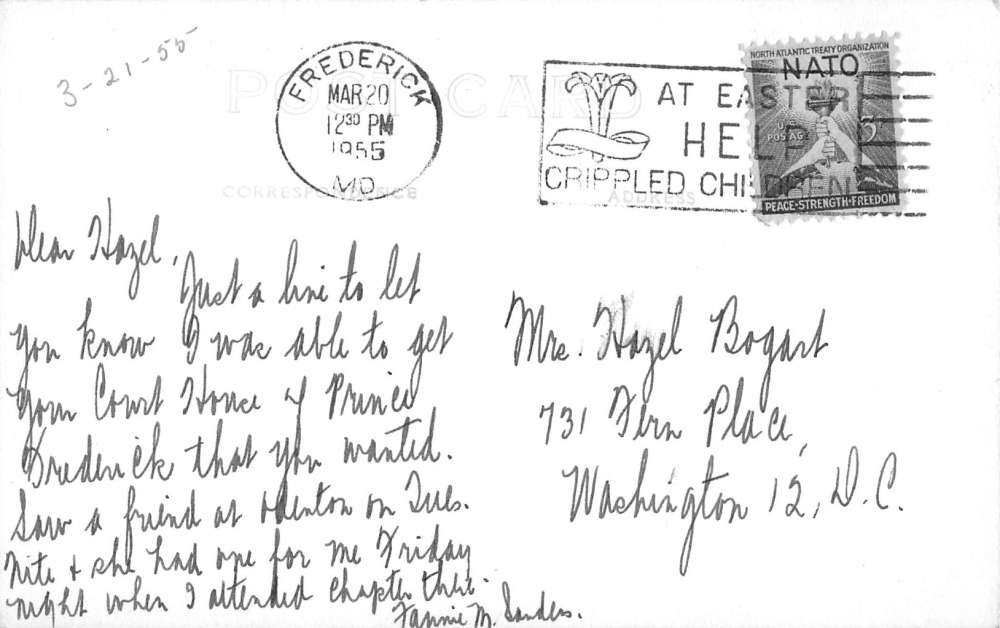 3-21-55
POST CARD
FREDERICK
MAR 20
12 30 PM
1955
MD.
AT EASTER
HELP
CRIPPLED CHILDREN
NORTH ATLANTIC TREATY ORGANIZATION
NATO
U.S. POSTAGE
3¢
PEACE·STRENGTH·FREEDOM
CORRESPONDENCE
ADDRESS
Dear Hazel,
Just a line to let
you know I was able to get
your Court House of Prince
Frederick that you wanted.
Saw a friend at Odenton on Tues.
Nite & she had one for me Friday
night when I attended Chapter there.
Fannie M. Sanders.
Mrs. Hazel Bogart
731 Fern Place,
Washington 12, D.C.